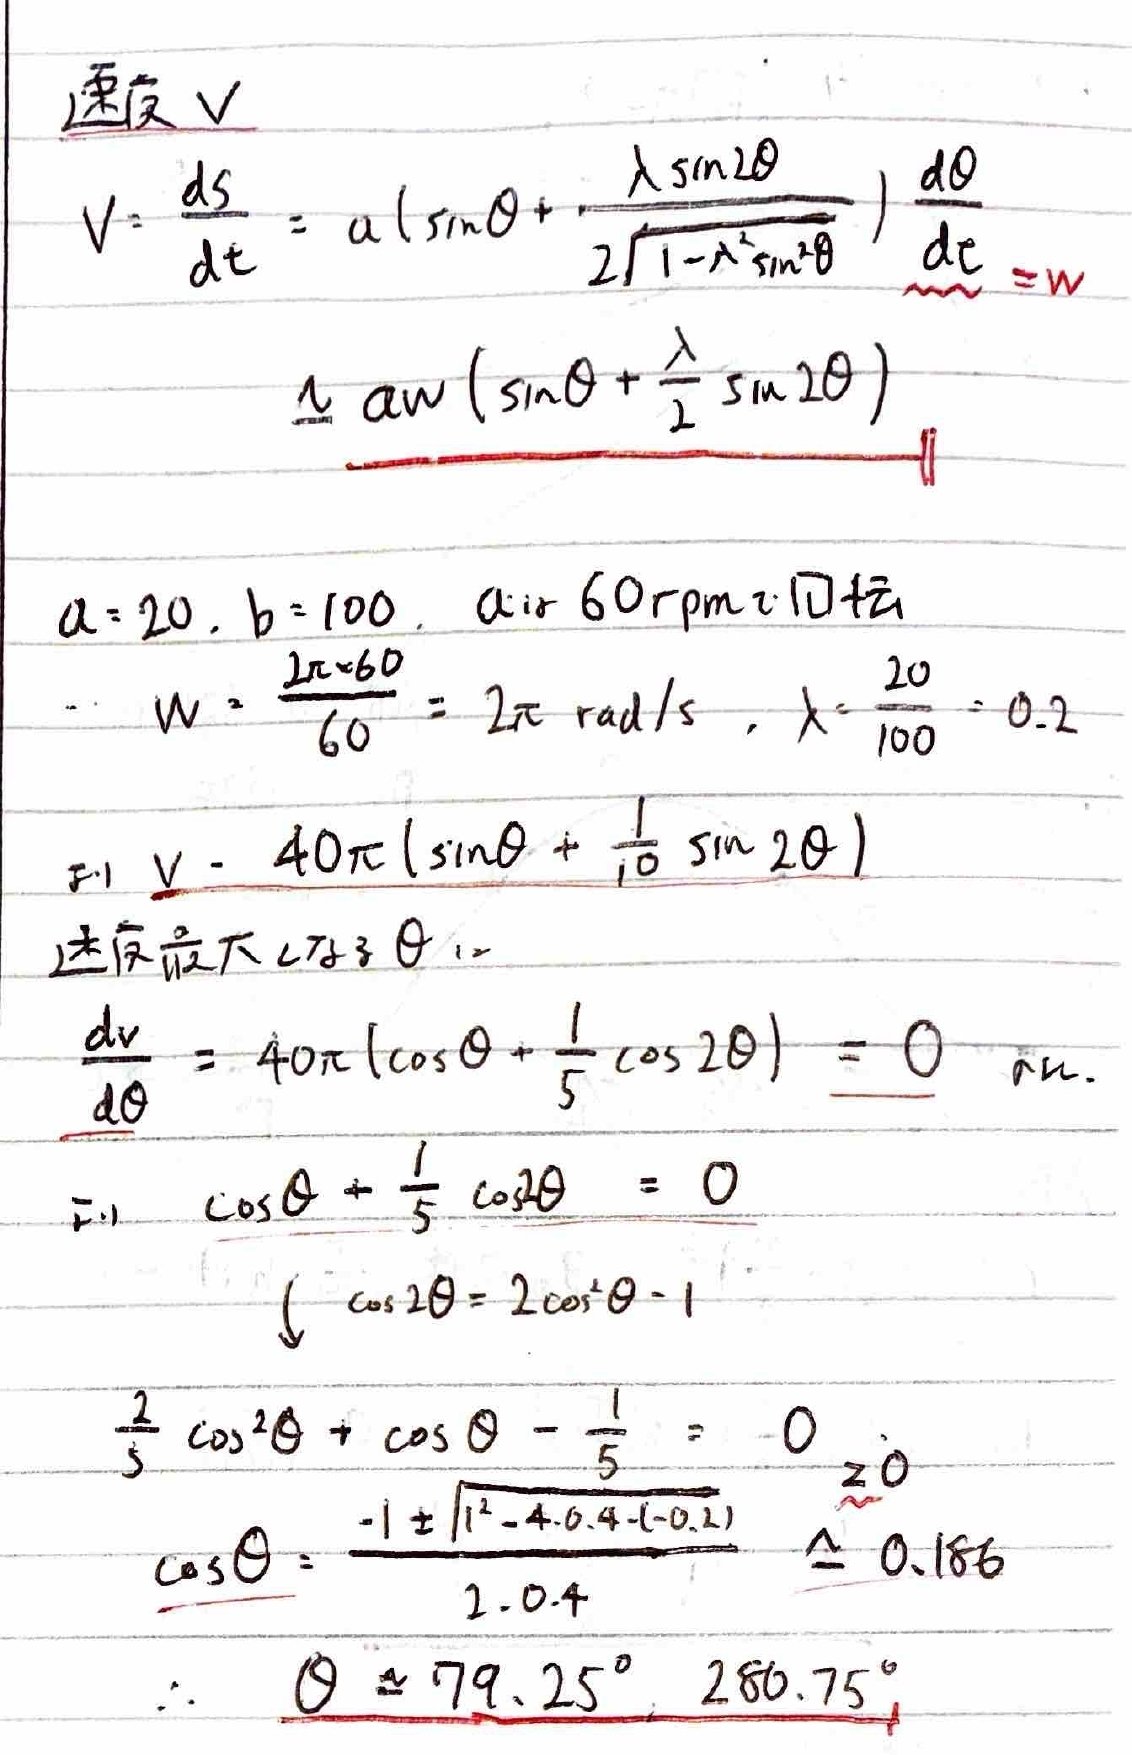 速度 V
V = ds/dt = a(sinθ + λ sin2θ / 2√(1-λ²sin²θ)) dθ/dt = w
≃ aw(sinθ + λ/2 sin2θ)
a = 20. b = 100. aは 60rpmで回転
∵ w = 2π×60/60 = 2π rad/s, λ = 20/100 = 0.2
より V = 40π(sinθ + 1/10 sin2θ)
速度最大となるθは
dv/dθ = 40π(cosθ + 1/5 cos2θ) = 0
より cosθ + 1/5 cos2θ = 0
↓ cos2θ = 2cos²θ - 1
2/5 cos²θ + cosθ - 1/5 = 0
≥0
cosθ = -1 ± √(1² - 4·0.4·(-0.2)) / 2·0.4 ≃ 0.186
∴ θ ≃ 79.25°, 280.75°